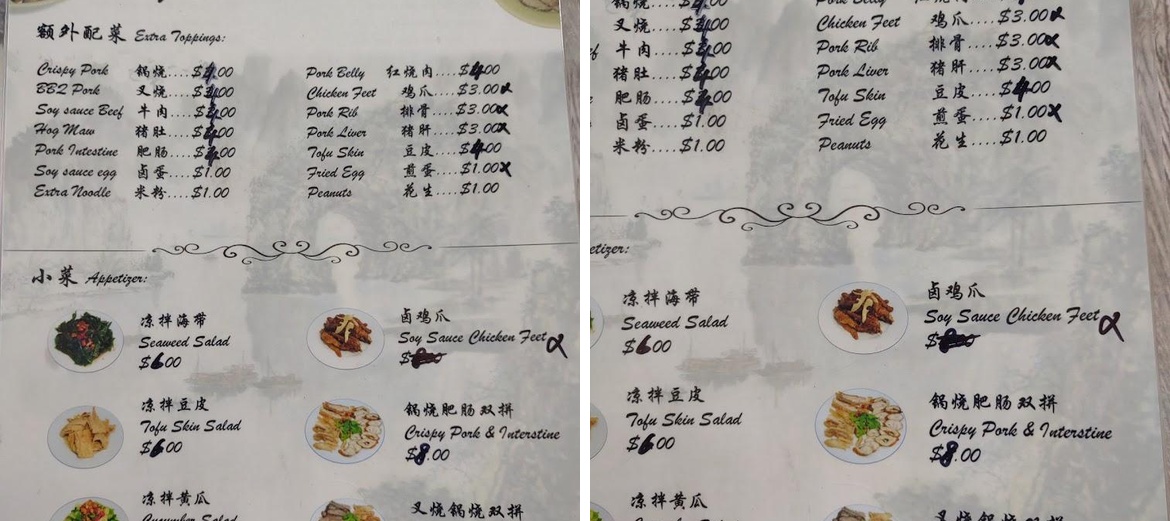 额外配菜 Extra Toppings:
Crispy Pork 锅烧....$4.00
BBQ Pork 叉烧....$4.00
Soy sauce Beef 牛肉....$4.00
Hog Maw 猪肚....$4.00
Pork Intestine 肥肠....$4.00
Soy sauce egg 卤蛋....$1.00
Extra Noodle 米粉....$1.00
Pork Belly 红烧肉....$4.00
Chicken Feet 鸡爪....$3.00
Pork Rib 排骨....$3.00
Pork Liver 猪肝....$3.00
Tofu Skin 豆皮....$4.00
Fried Egg 煎蛋....$1.00
Peanuts 花生....$1.00
小菜 Appetizer:
凉拌海带
Seaweed Salad
$6.00
卤鸡爪
Soy Sauce Chicken Feet
凉拌豆皮
Tofu Skin Salad
$6.00
锅烧肥肠双拼
Crispy Pork & Interstine
$8.00
凉拌黄瓜
Cucumber Salad
叉烧锅烧双拼
叉烧....
牛肉....
猪肚....
肥肠....
卤蛋....$1.00
米粉....$1.00
Chicken Feet 鸡爪....$3.00
Pork Rib 排骨....$3.00
Pork Liver 猪肝....$3.00
Tofu Skin 豆皮....$4.00
Fried Egg 煎蛋....$1.00
Peanuts 花生....$1.00
凉拌海带
Seaweed Salad
$6.00
卤鸡爪
Soy Sauce Chicken Feet
凉拌豆皮
Tofu Skin Salad
$6.00
锅烧肥肠双拼
Crispy Pork & Interstine
$8.00
凉拌黄瓜
叉烧锅烧双拼